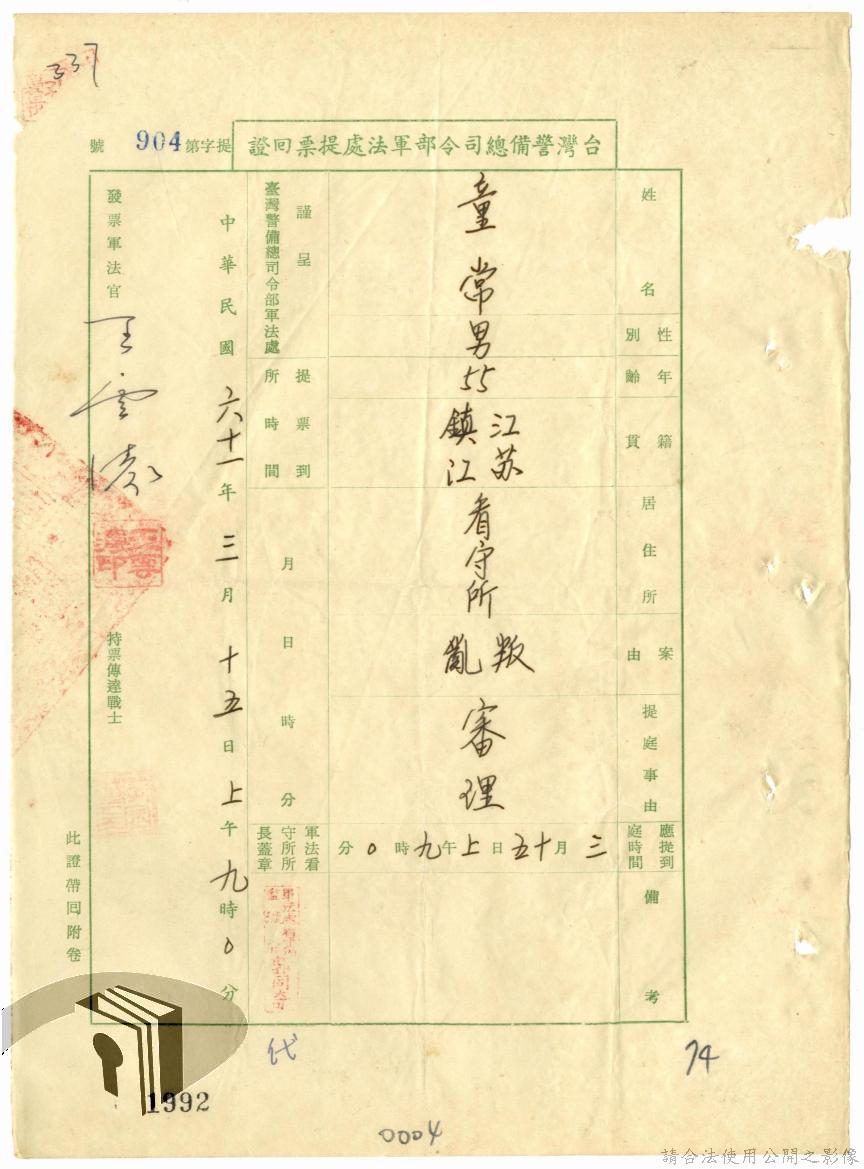 337
台灣警備總司令部軍法處提票回證
提字第904號
姓名
童常
性別
男
年齡
55
籍貫
江苏
鎮江
居住所
看守所
案由
叛亂
提庭事由
審理
應提到庭時間
三月十五日上午九時0分
備考
謹呈
臺灣警備總司令部軍法處
提票到所時間
月日時分
軍法看守所所長蓋章
代
中華民國六十一年三月十五日上午九時0分
發票軍法官
持票傳達戰士
此證帶回附卷
74
1992
0004
請合法使用公開之影像